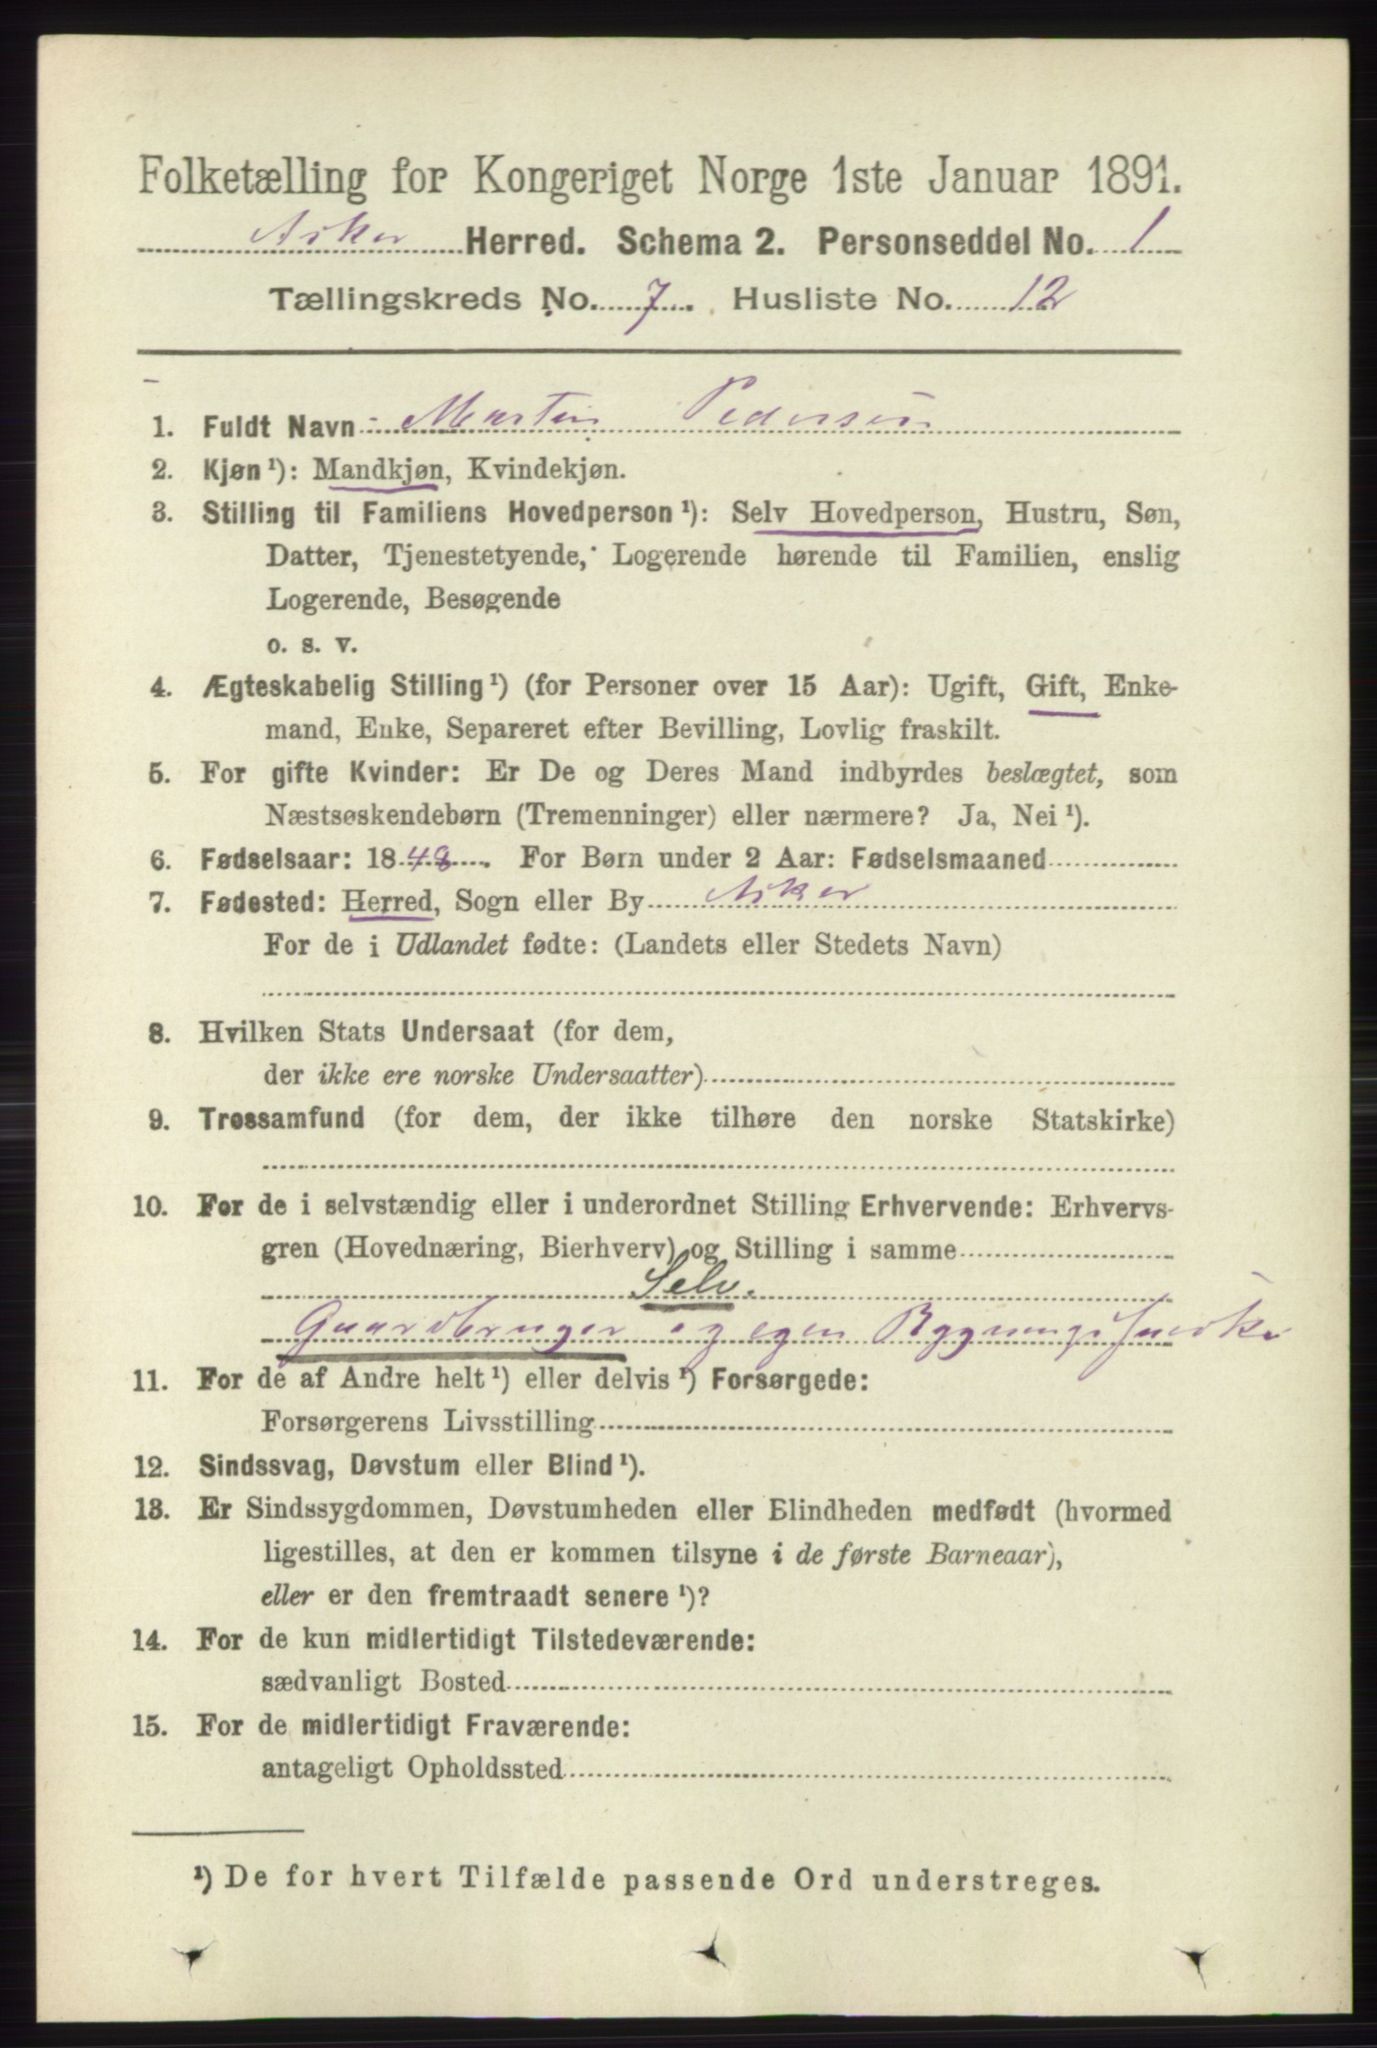 Folketælling for Kongeriget Norge 1ste Januar 1891.
Asker Herred. Schema 2. Personseddel No. 1
Tællingskreds No. 7. Husliste No. 12
1. Fuldt Navn Martin Pedersen
2. Kjøn¹): Mandkjøn, Kvindekjøn.
3. Stilling til Familiens Hovedperson¹): Selv Hovedperson, Hustru, Søn,
Datter, Tjenestetyende, Logerende hørende til Familien, enslig
Logerende, Besøgende
o. s. v.
4. Ægteskabelig Stilling¹) (for Personer over 15 Aar): Ugift, Gift, Enke-
mand, Enke, Separeret efter Bevilling, Lovlig fraskilt.
5. For gifte Kvinder: Er De og Deres Mand indbyrdes beslægtet, som
Næstsøskendebørn (Tremenninger) eller nærmere? Ja, Nei¹).
6. Fødselsaar: 1848. For Børn under 2 Aar: Fødselsmaaned
7. Fødested: Herred, Sogn eller By Asker
For de i Udlandet fødte: (Landets eller Stedets Navn)
8. Hvilken Stats Undersaat (for dem,
der ikke ere norske Undersaatter)
9. Trossamfund (for dem, der ikke tilhøre den norske Statskirke)
10. For de i selvstændig eller i underordnet Stilling Erhvervende: Erhvervs-
gren (Hovednæring, Bierhverv) og Stilling i samme
Selv.
Gaardbruger og egen Bygningssnedker
11. For de af Andre helt¹) eller delvis¹) Forsørgede:
Forsørgerens Livsstilling
12. Sindssvag, Døvstum eller Blind¹).
13. Er Sindssygdommen, Døvstumheden eller Blindheden medfødt (hvormed
ligestilles, at den er kommen tilsyne i de første Barneaar),
eller er den fremtraadt senere¹)?
14. For de kun midlertidigt Tilstedeværende:
sædvanligt Bosted
15. For de midlertidigt Fraværende:
antageligt Opholdssted
¹) De for hvert Tilfælde passende Ord understreges.